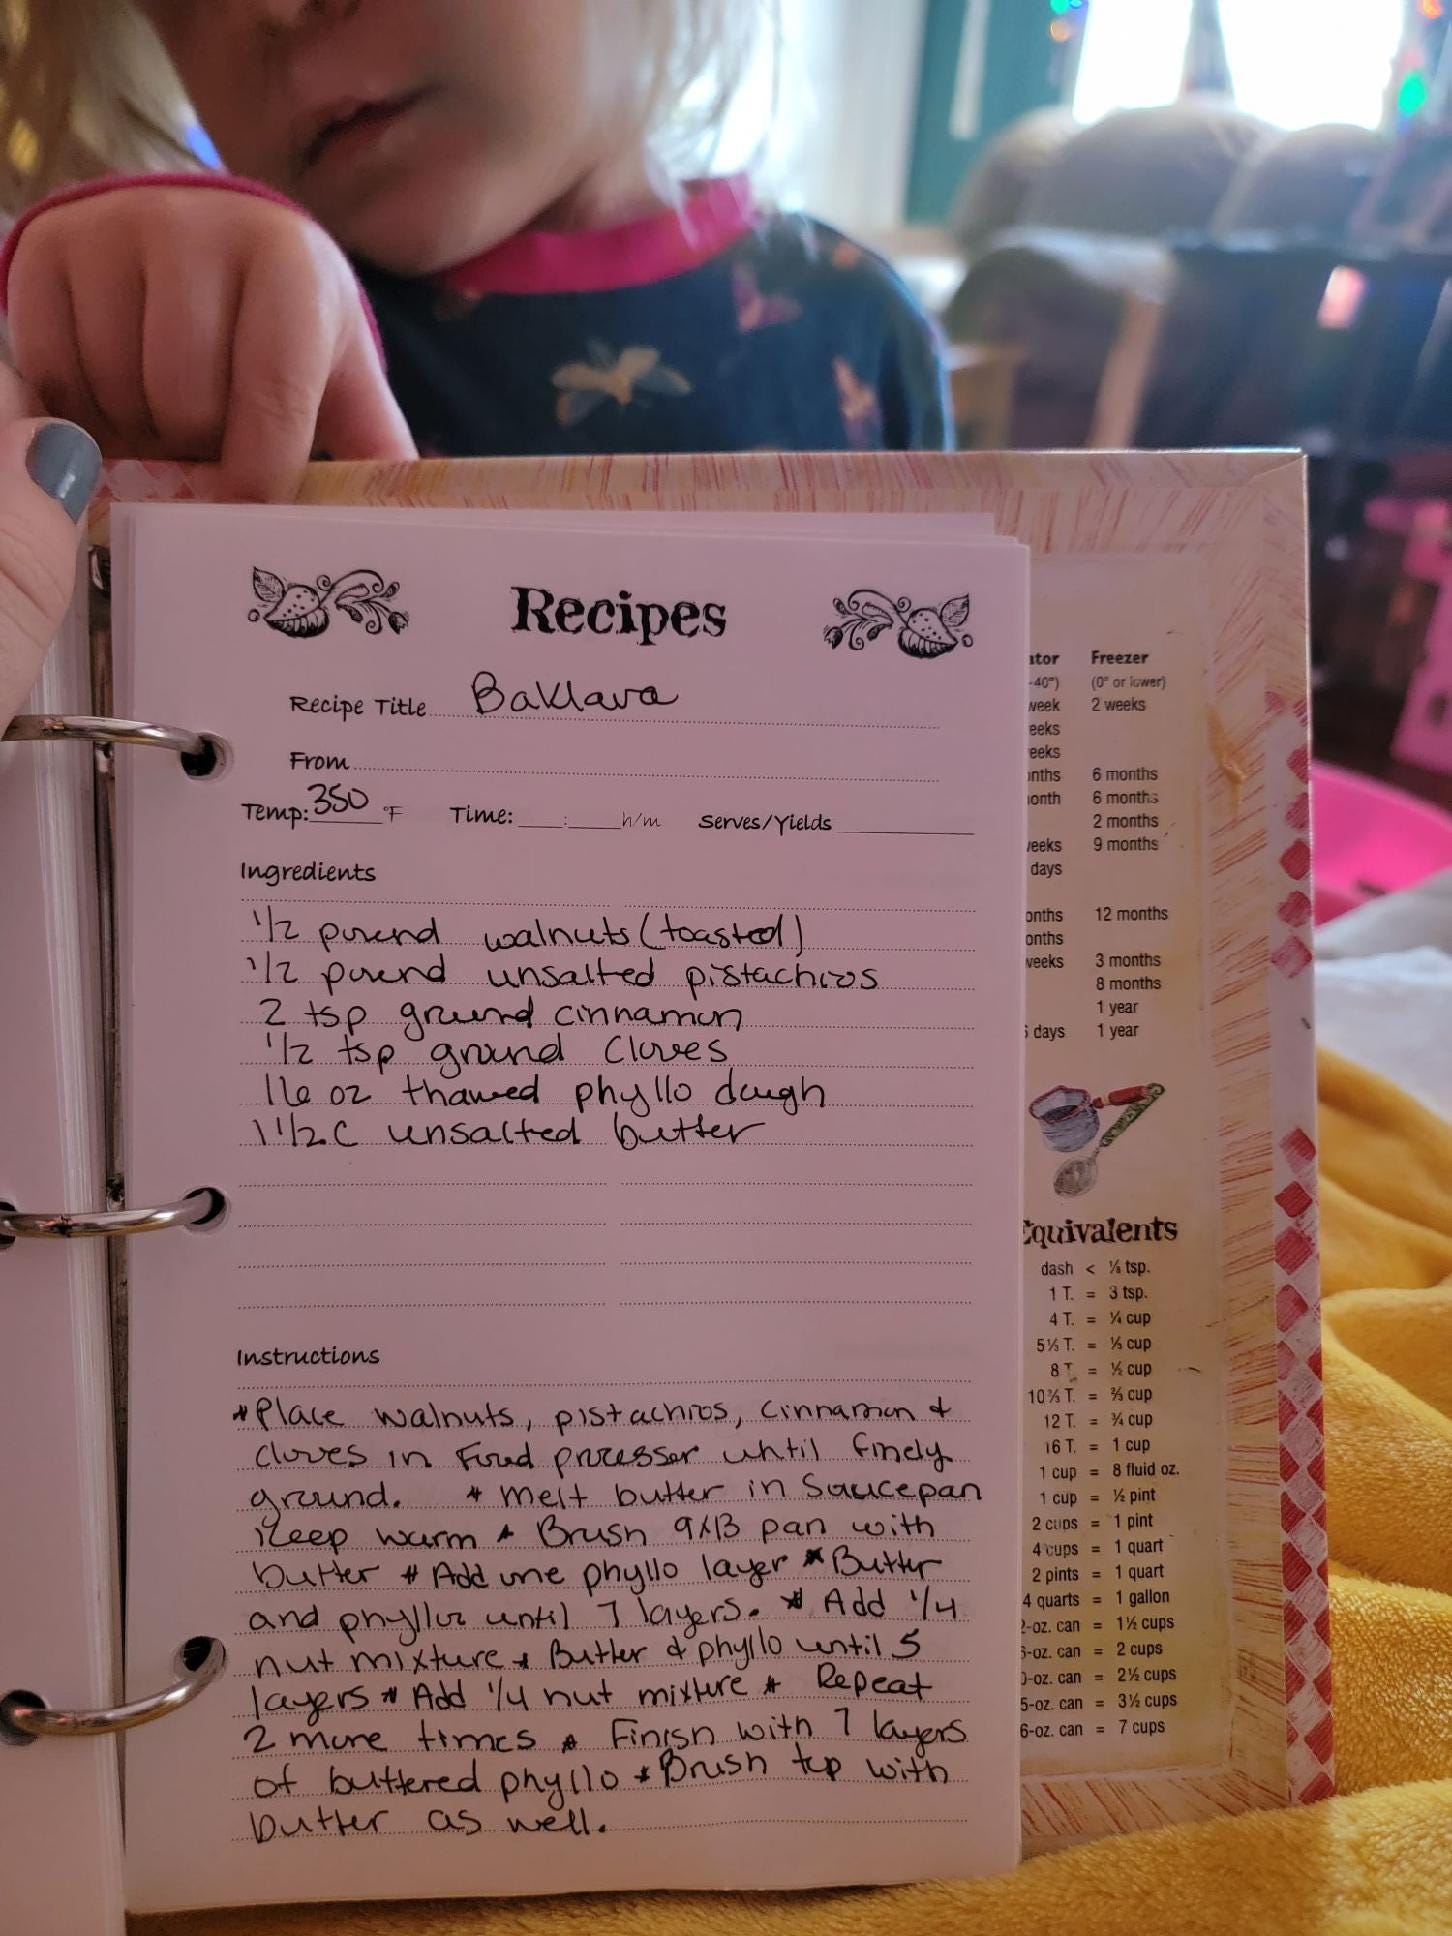 Recipes
Recipe Title Baklava
From
Temp: 350 °F Time: __:__ h/m Serves/Yields
Ingredients
1/2 pound walnuts (toasted)
1/2 pound unsalted pistachios
2 tsp ground cinnamon
1/2 tsp ground cloves
16 oz thawed phyllo dough
1 1/2 C unsalted butter
Instructions
*Place walnuts, pistachios, cinnamon &
cloves in food processer until finely
ground. * Melt butter in saucepan
keep warm * Brush 9x13 pan with
butter * Add one phyllo layer * Butter
and phyllo until 7 layers. * Add 1/4
nut mixture * Butter & phyllo until 5
layers * Add 1/4 nut mixture * Repeat
2 more times * Finish with 7 layers
of buttered phyllo * Brush top with
butter as well.
Freezer
(0° or lower)
week 2 weeks
6 months
6 months
2 months
9 months
days
12 months
weeks 3 months
8 months
1 year
days 1 year
Equivalents
dash < ⅛ tsp.
1 T. = 3 tsp.
4 T. = ¼ cup
5⅓ T. = ⅓ cup
8 T. = ½ cup
10⅔ T. = ⅔ cup
12 T. = ¾ cup
16 T. = 1 cup
1 cup = 8 fluid oz.
1 cup = ½ pint
2 cups = 1 pint
4 cups = 1 quart
2 pints = 1 quart
4 quarts = 1 gallon
-oz. can = 1½ cups
-oz. can = 2 cups
-oz. can = 2½ cups
5-oz. can = 3½ cups
6-oz. can = 7 cups